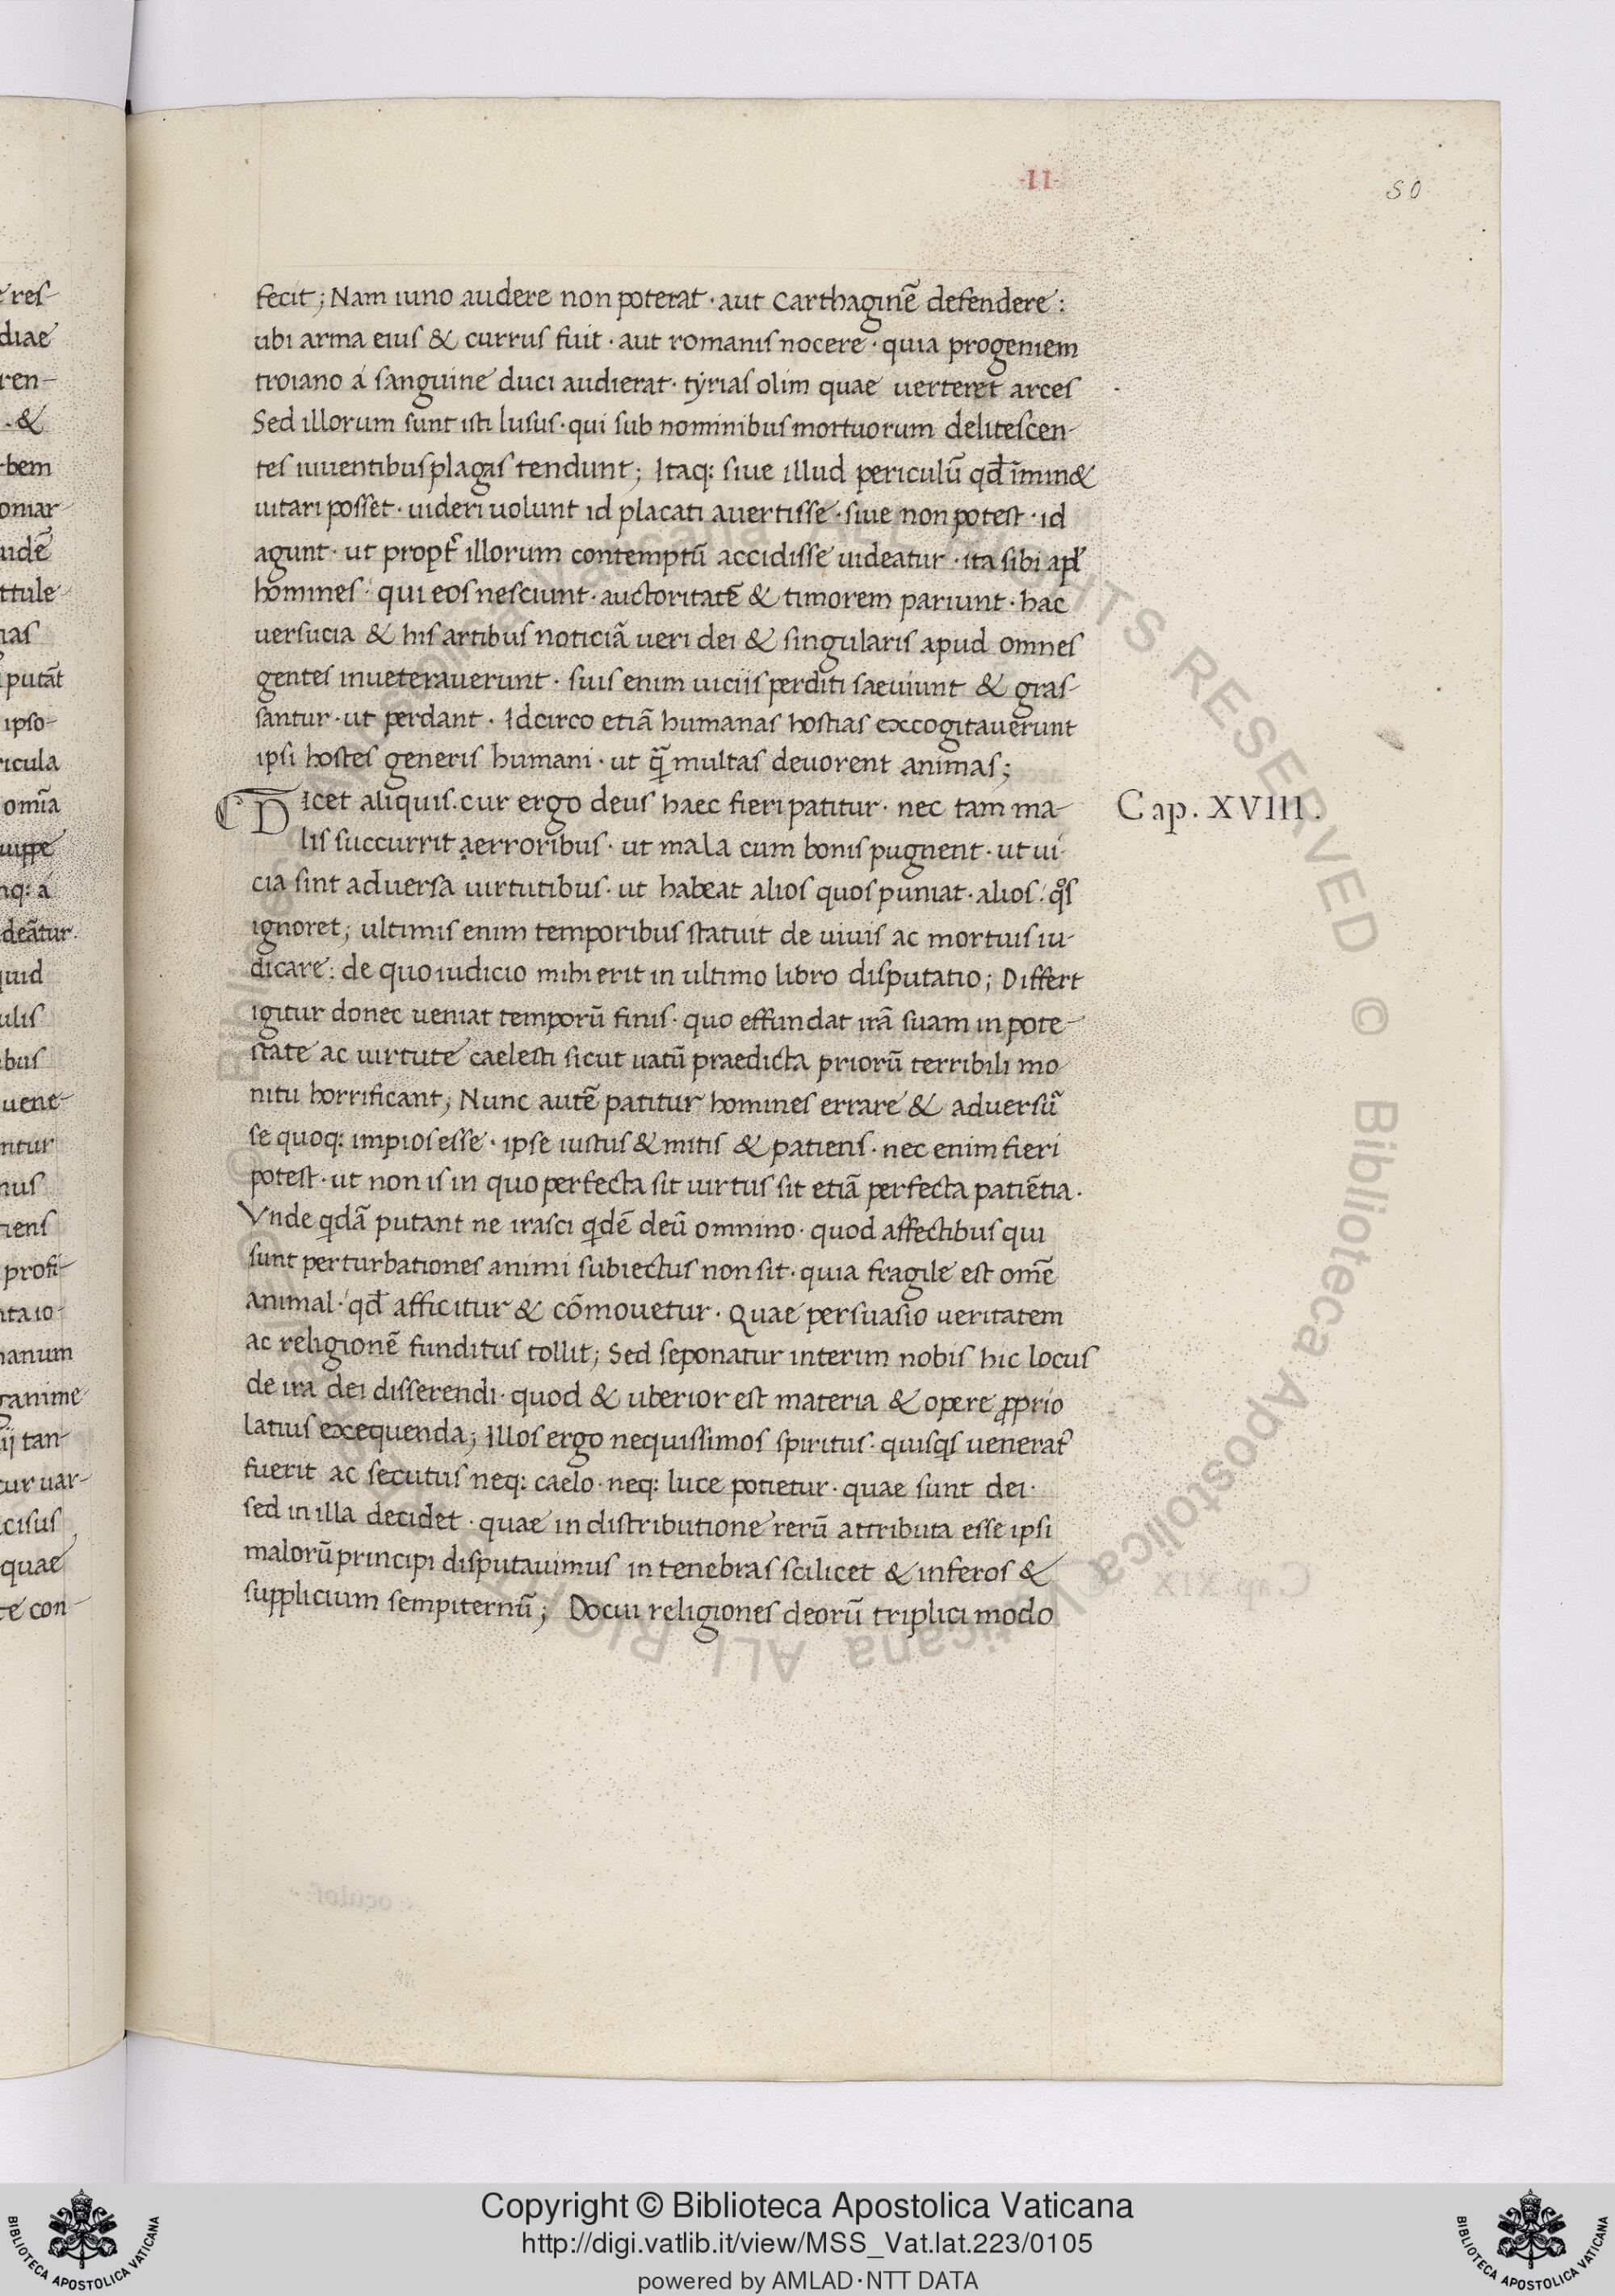 ·II·
50
fecit; Nam iuno audere non poterat · aut Carthaginē defendere:
ubi arma eius & currus fuit · aut romanis nocere · quia progeniem
troiano á sanguine duci audierat · tyrias olim quae uerteret arces
Sed illorum sunt isti lusus · qui sub nominibus mortuorum delitescen-
tes uiuentibus plagas tendunt; Itaq: siue illud periculū qđ īmin&
uitari posset · uideri uolunt id placati auertisse · siue non potest · id
agunt · ut propt̄ illorum contemptū accidisse uideatur · ita sibi apđ
homines · qui eos nesciunt · auctoritatē & timorem pariunt · hac
uersucia & his artibus noticiā ueri dei & singularis apud omnes
gentes inueterauerunt · suis enim uiciis perditi saeuiunt & gras-
santur · ut perdant · Idcirco etiā humanas hostias excogitauerunt
ipsi hostes generis humani · ut q̄ multas deuorent animas;
Dicet aliquis. cur ergo deus haec fieri patitur · nec tam ma-
lis succurrit aerroribus · ut mala cum bonis pugnent · ut ui-
cia sint aduersa uirtutibus · ut habeat alios quos puniat · alios · qºs
ignoret; ultimis enim temporibus statuit de uiuis ac mortuis iu-
dicare: de quo iudicio mihi erit in ultimo libro disputatio; Differt
igitur donec ueniat temporū finis · quo effundat irā suam in pote-
state ac uirtute caelesti sicut uatū praedicta priorū terribili mo-
nitu horrificant; Nunc autē patitur homines errare & aduersū
se quoq: impios esse · ipse iustus & mitis & patiens · nec enim fieri
potest · ut non is in quo perfecta sit uirtus sit etiā perfecta patiētia.
Vnde qdā putant ne irasci qdē deū omnino · quod affectibus qui
sunt perturbationes animi subiectus non sit · quia fragile est omē
animal · qđ afficitur & cōmouetur · Quae persuasio ueritatem
ac religionē funditus tollit; Sed seponatur interim nobis hic locus
de ira dei disserendi · quod & uberior est materia & opere ꝓprio
latius exequenda; Illos ergo nequissimos spiritus · quisqs uenerat̄
fuerit ac secutus neq: caelo · neq: luce potietur · quae sunt dei ·
sed in illa decidet · quae in distributione rerū attributa esse ipsi
malorū principi disputauimus in tenebras scilicet & inferos &
supplicium sempiternū; Docui religiones deorū triplici modo
Cap. XVIII.
e res-
diae
ren-
. &
rbem
omar-
uidē
ttule-
nas
putāt
ipso-
ricula
omīa
uippe
nq: á
deātur.
quid
ulis
ibus
uene-
ntur
nus
tiens
profi-
nta io-
manum
ganime
ij tan-
tur uar-
cisus
quae
te con-
Copyright © Biblioteca Apostolica Vaticana
http://digi.vatlib.it/view/MSS_Vat.lat.223/0105
powered by AMLAD·NTT DATA
BIBLIOTECA APOSTOLICA VATICANA
BIBLIOTECA APOSTOLICA VATICANA